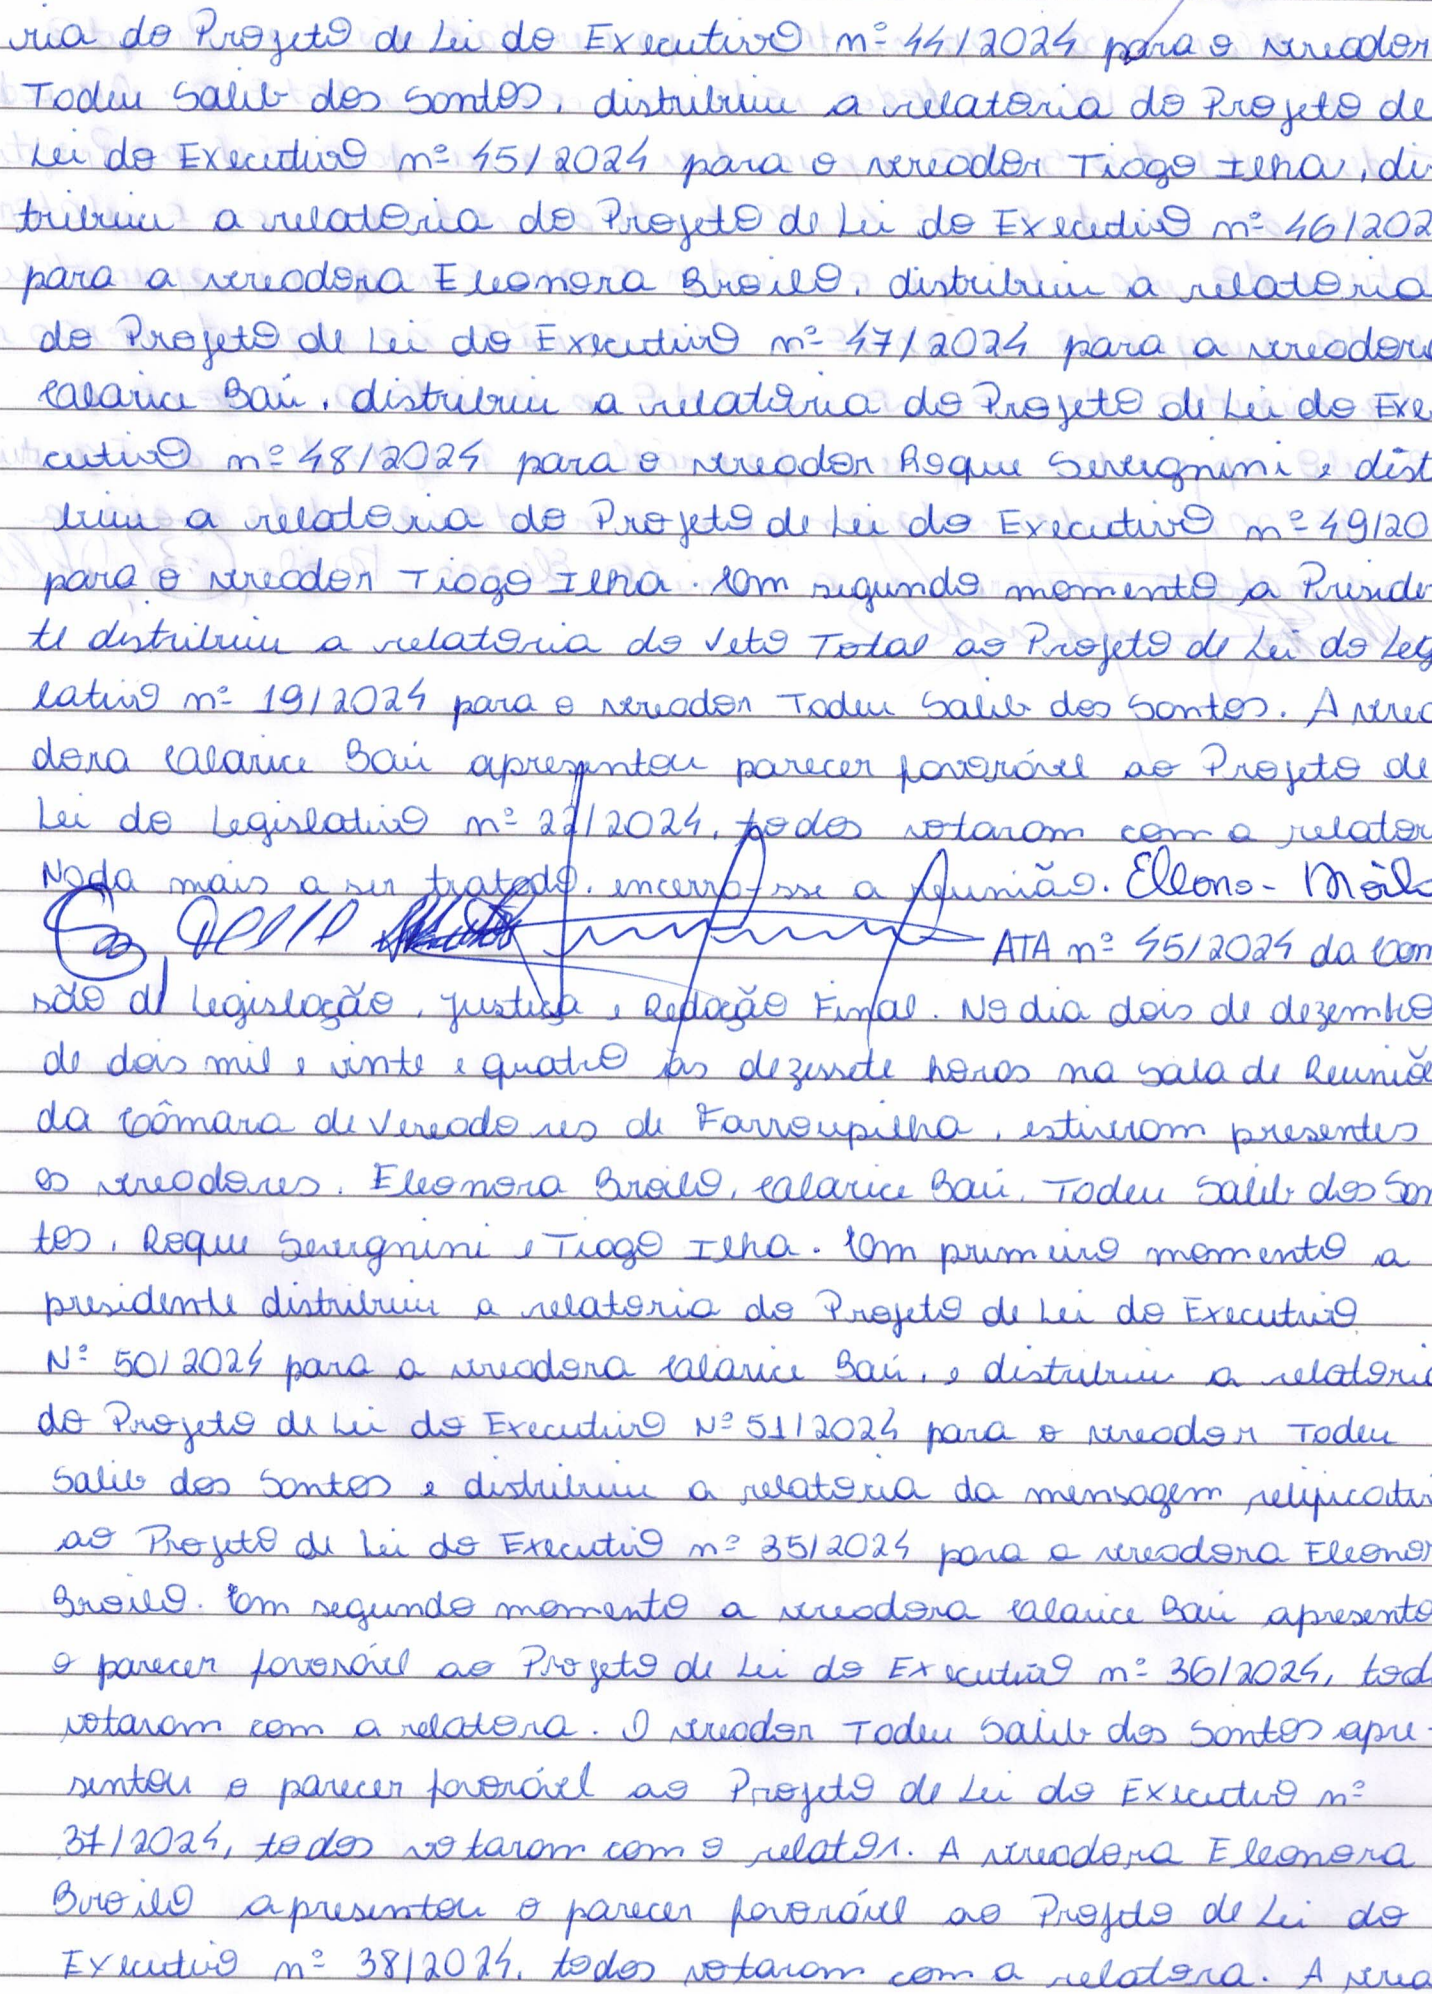 ria do Projeto de Lei do Executivo nº 44/2024 para o vereador
Tadeu Salib dos Santos, distribuiu a relatoria do Projeto de
Lei do Executivo nº 45/2024 para o vereador Tiago Ilha, di
tribuiu a relatoria do Projeto de Lei do Executivo nº 46/202
para a vereadora Eleonora Broilo, distribuiu a relatoria
do Projeto de Lei do Executivo nº 47/2024 para a vereadora
Calarice Baú, distribuiu a relatoria do Projeto de Lei do Exe
cutivo nº 48/2024 para o vereador Roque Severgnini e dist
buiu a relatoria do Projeto de Lei do Executivo nº 49/20
para o vereador Tiago Ilha. Em segundo momento a Preside
te distribuiu a relatoria do Veto Total ao Projeto de Lei do Leg
lativo nº 19/2024 para o vereador Tadeu Salib dos Santos. A verea
dora Calarice Baú apresentou parecer favorável ao Projeto de
Lei do Legislativo nº 22/2024, todos votaram com a relator
Nada mais a ser tratado, encerra-sse a reunião.
ATA nº 45/2024 da Com
são de Legislação, Justiça e Redação Final. No dia dois de dezembro
de dois mil e vinte e quatro às dezessete horas na sala de Reuniõe
da Câmara de Vereadores de Farroupilha, estiveram presentes
os vereadores. Eleonora Broilo, Calarice Baú, Tadeu Salib dos San
tos, Roque Severgnini e Tiago Ilha. Em primeiro momento a
presidente distribuiu a relatoria do Projeto de Lei do Executivo
Nº 50/2024 para a vereadora Calarice Baú, e distribuiu a relatoria
do Projeto de Lei do Executivo Nº 51/2024 para o vereador Tadeu
Salib dos Santos e distribuiu a relatoria da mensagem retificativ
ao Projeto de Lei do Executivo nº 35/2024 para a vereadora Eleonor
Broilo. Em segundo momento a vereadora Calarice Baú apresento
o parecer favorável ao Projeto de Lei do Executivo nº 36/2024, tod
votaram com a relatora. O vereador Tadeu Salib dos Santos apre-
sentou o parecer favorável ao Projeto de Lei do Executivo nº
37/2024, todos votaram com o relator. A vereadora Eleonora
Broilo apresentou o parecer favorável ao Projeto de Lei do
Executivo nº 38/2024, todos votaram com a relatora. A verea